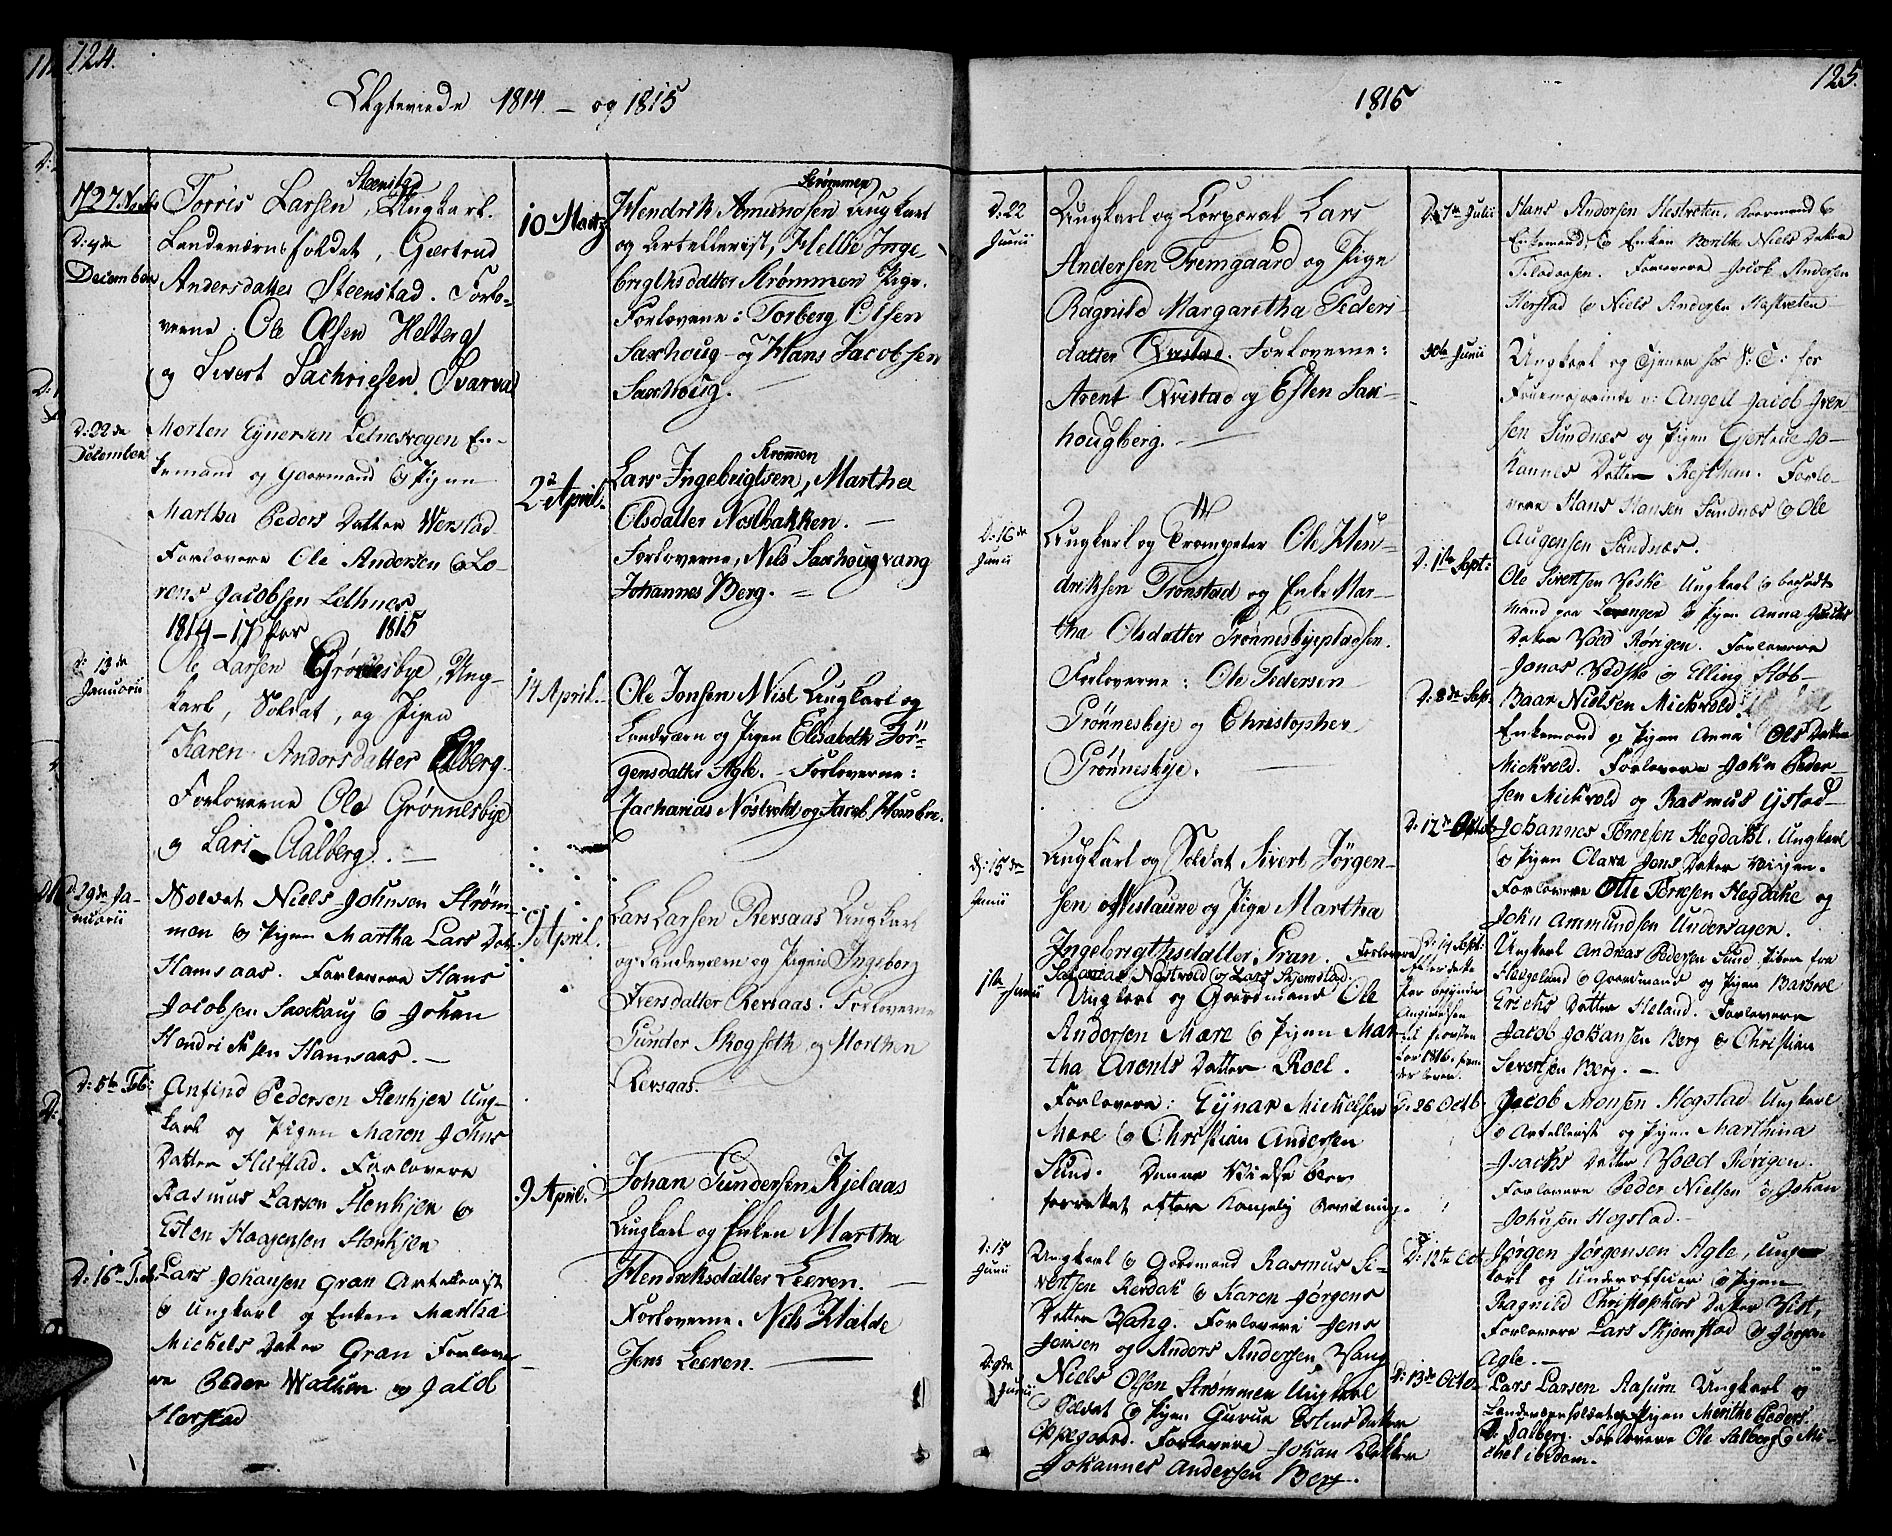 124.
Egteviede 1814 – og 1815
D: 27 Novbr
Torris Larsen Steenstad, Ungkarl.
Landeværns soldat, Gjertrud
Andersdatter Steenstad. Forlo-
verne: Ole Olsen Helberg
og Sivert Sachriesen Svarva
D: 4de
December
D: 22de
December
Morten Eynersen Letnesvogen En-
kemand og Gaarmand & Pigen
Martha Peders Datter Werstad
Forlovere Ole Andersen & Lo-
rens Jacobsen Lethnes
1814 – 17 Par 1815
D: 13de
Januarii
Ole Larsen Grønnesbye, Ung-
karl, Soldat, og Pigen
Karen Andersdatter Elberg.
Forloverne Ole Grønnesbye
og Lars Aalberg. –
D: 29de Ja-
nuarii
Soldat Niels Johnsen Strøm-
men & Pigen Martha Lars Dat:
Hamsaas. Forlovere Hans
Jacobsen Saxhaug & Johan
Hendriksen Hamsaas. –
D: 5te Feb:
Anfind Pedersen Stenkjer Ung-
karl og Pigen Maren Johns
Datter Hustad. Forlovere
Rasmus Larsen Stenkjer &
Esten Haagensen Stenkjer
D: 16de Feb.
Lars Johansen Gran Artellerist
& Ungkarl og Enken Martha
Michels Datter Gran Forlove-
re Peder Watlien og Jacob
Herstad
10 Martz
Hendrik Amundsen Strømmen Ungkarl
og Artellerist, Helle Inge-
brigtsdatter Strømmen Pige.
Forloverne: Torberg Olsen
Saxhoug – og Hans Jacobsen
Saxhoug. –
2de April.
Lars Ingebrigtsen Strømmen, Martha
Olsdatter Nostbakken. –
Forloverne, Nils Saxhougvang
Johannes Berg. –
14 April.
Ole Jonsen Nist Ungkarl og
Landværn og Pigen Elisabeth Jör-
gensdatter Agle. – Forloverne:
Zacharias Nöstvold og Jacob Hombn.
9 April.
Lars Larsen Rersaas Ungkarl
og Landeværn og Pigen Ingeborg
Iversdatter Rersaas. Forloverne
Gunder Skogseth og Morthen
Rersaas.
9 April.
Johan Gundersen Kjelaas
Ungkarl og Enken Martha
Hendriksdatter Leeren. –
Forloverne. Nils Halde
Jens Leeren. –
125.
1815
D: 22
Junii
Ungkarl og Corporal Lars
Andersen Fremgaard og Pige
Ragnild Margaretha Peders-
datter Qvistad. Forloverne:
Arent Qvistad og Esten Sax-
hougberg. –
D: 16de
Junii
Ungkarl og Trompeter Ole Hen-
driksen Tronstad og Enke Mar-
tha Olsdatter Grönnesbyepladsen.
Forloverne: Ole Pedersen
Grönnesbye og Christopher
Grönnesbye. –
D: 15de
Junii
Ungkarl og Soldat Sivert Jörgen-
sen Mestaune og Pige Martha
Ingebrigthsdatter Gran. Forlovere
Zacarias Nöstvold & Lars Skjemstad.
1ste Junii
Ungkarl og Gaardmand Ole
Andersen Mære & Pigen Mar-
tha Arents Datter Roel.
Forlovere: Eynar Mickelsen
Mære & Christian Andersen
Sund. Denne Vielse blev
forrettet efter Kongelig Bevilning.
D: 15
Junii
Ungkarl & Gaardmand Rasmus Si-
vertsen Rerdahl & Karen Jörgens
Datter Vang. Forlovere Jens
Jensen og Anders Andersen Vang
D: 9de
Junii
Niels Olsen Strømmen Ungkarl
& Soldat & Pigen Gurue Estens Datter
Oppegaard. Forlovere Johan Bakken
Johannes Andersen Berg.
D: 7de Julii
Hans Andersen Hestveten, Gaarmand &
Enkemand, & Enken Berithe Niels Datter
Forlovere Jacob Andersen
Herstad & Niels Andersen Hastveten
30te Junii
Ungkarl og Tjener for
Angell Jacob Iver-
sen Sundnæs og Pigen Gjertrue Jo-
hannes Datter Resthan. Forlo-
vere Hans Hansen Sundnæs & Ole
Augensen Sundnæs.
D: 1ste Sept:
Ole Sivertsen Veske Ungkarl & bosadt
Mand paa Levanger & Pigen Anna
Datter Vold Rörigen. Forlovere
Jonas Vedske & Elling Stob-
D: 8de Sept.
Baar Nielsen Mickvold
Enkemand og Pigen Anna Ols Datter
Mickvold. Forlovere John Peder-
sen Mickvold og Rasmus Ystad
D: 12te Octob
Johannes Tørresen Hegdahl, Ungkarl
& Pigen Olava Jens Datter
Forlovere Otte Tørresen Hegdahl og
John Ammundsen Undersagen.
D: 14 Sept.
Efter dette
Par begynder
Angivelsen
til Provsten
for 1816. frem-
deles.
Ungkarl Andreas Pedersen Sund, fra
Haugeland & Gaardmand og Pigen Barbroe
Erichs Datter Heland. Forlovere
Jacob Johansen Berg & Christian
Severtsen Berg. –
D: 26 Octb
Jacob Monsen Hogstad Ungkarl
& Artellerist og Pigen Marthina
Isachs Datter Voed Rörigen.
Forlovere Peder Nielsen & Johan
Johnsen Hogstad. –
D: 12te Oct
Jørgen Jørgensen Agle, Ung-
karl og Underofficer & Pigen
Ragnild Christophers Datter Vist,
Forlovere Lars Skjemstad & Jørgen
Agle. –
D: 13de Octor
Lars Larsen Aasum Ungkarl og
Landeværnsoldat & Pigen Merithe Peders
D. Dalberg. Forlovere Ole Salberg & Mi-
chel ibidem.